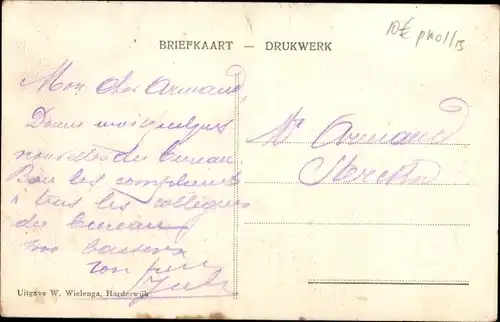 BRIEFKAART — DRUKWERK
10€
Mon cher Armand,
Donne moi quelques
nouvelles du bureau
Bon les compliments
à tous les collegues
du bureau
ton
Jules
Mr Armand
Uitgave W. Wielenga, Harderwijk